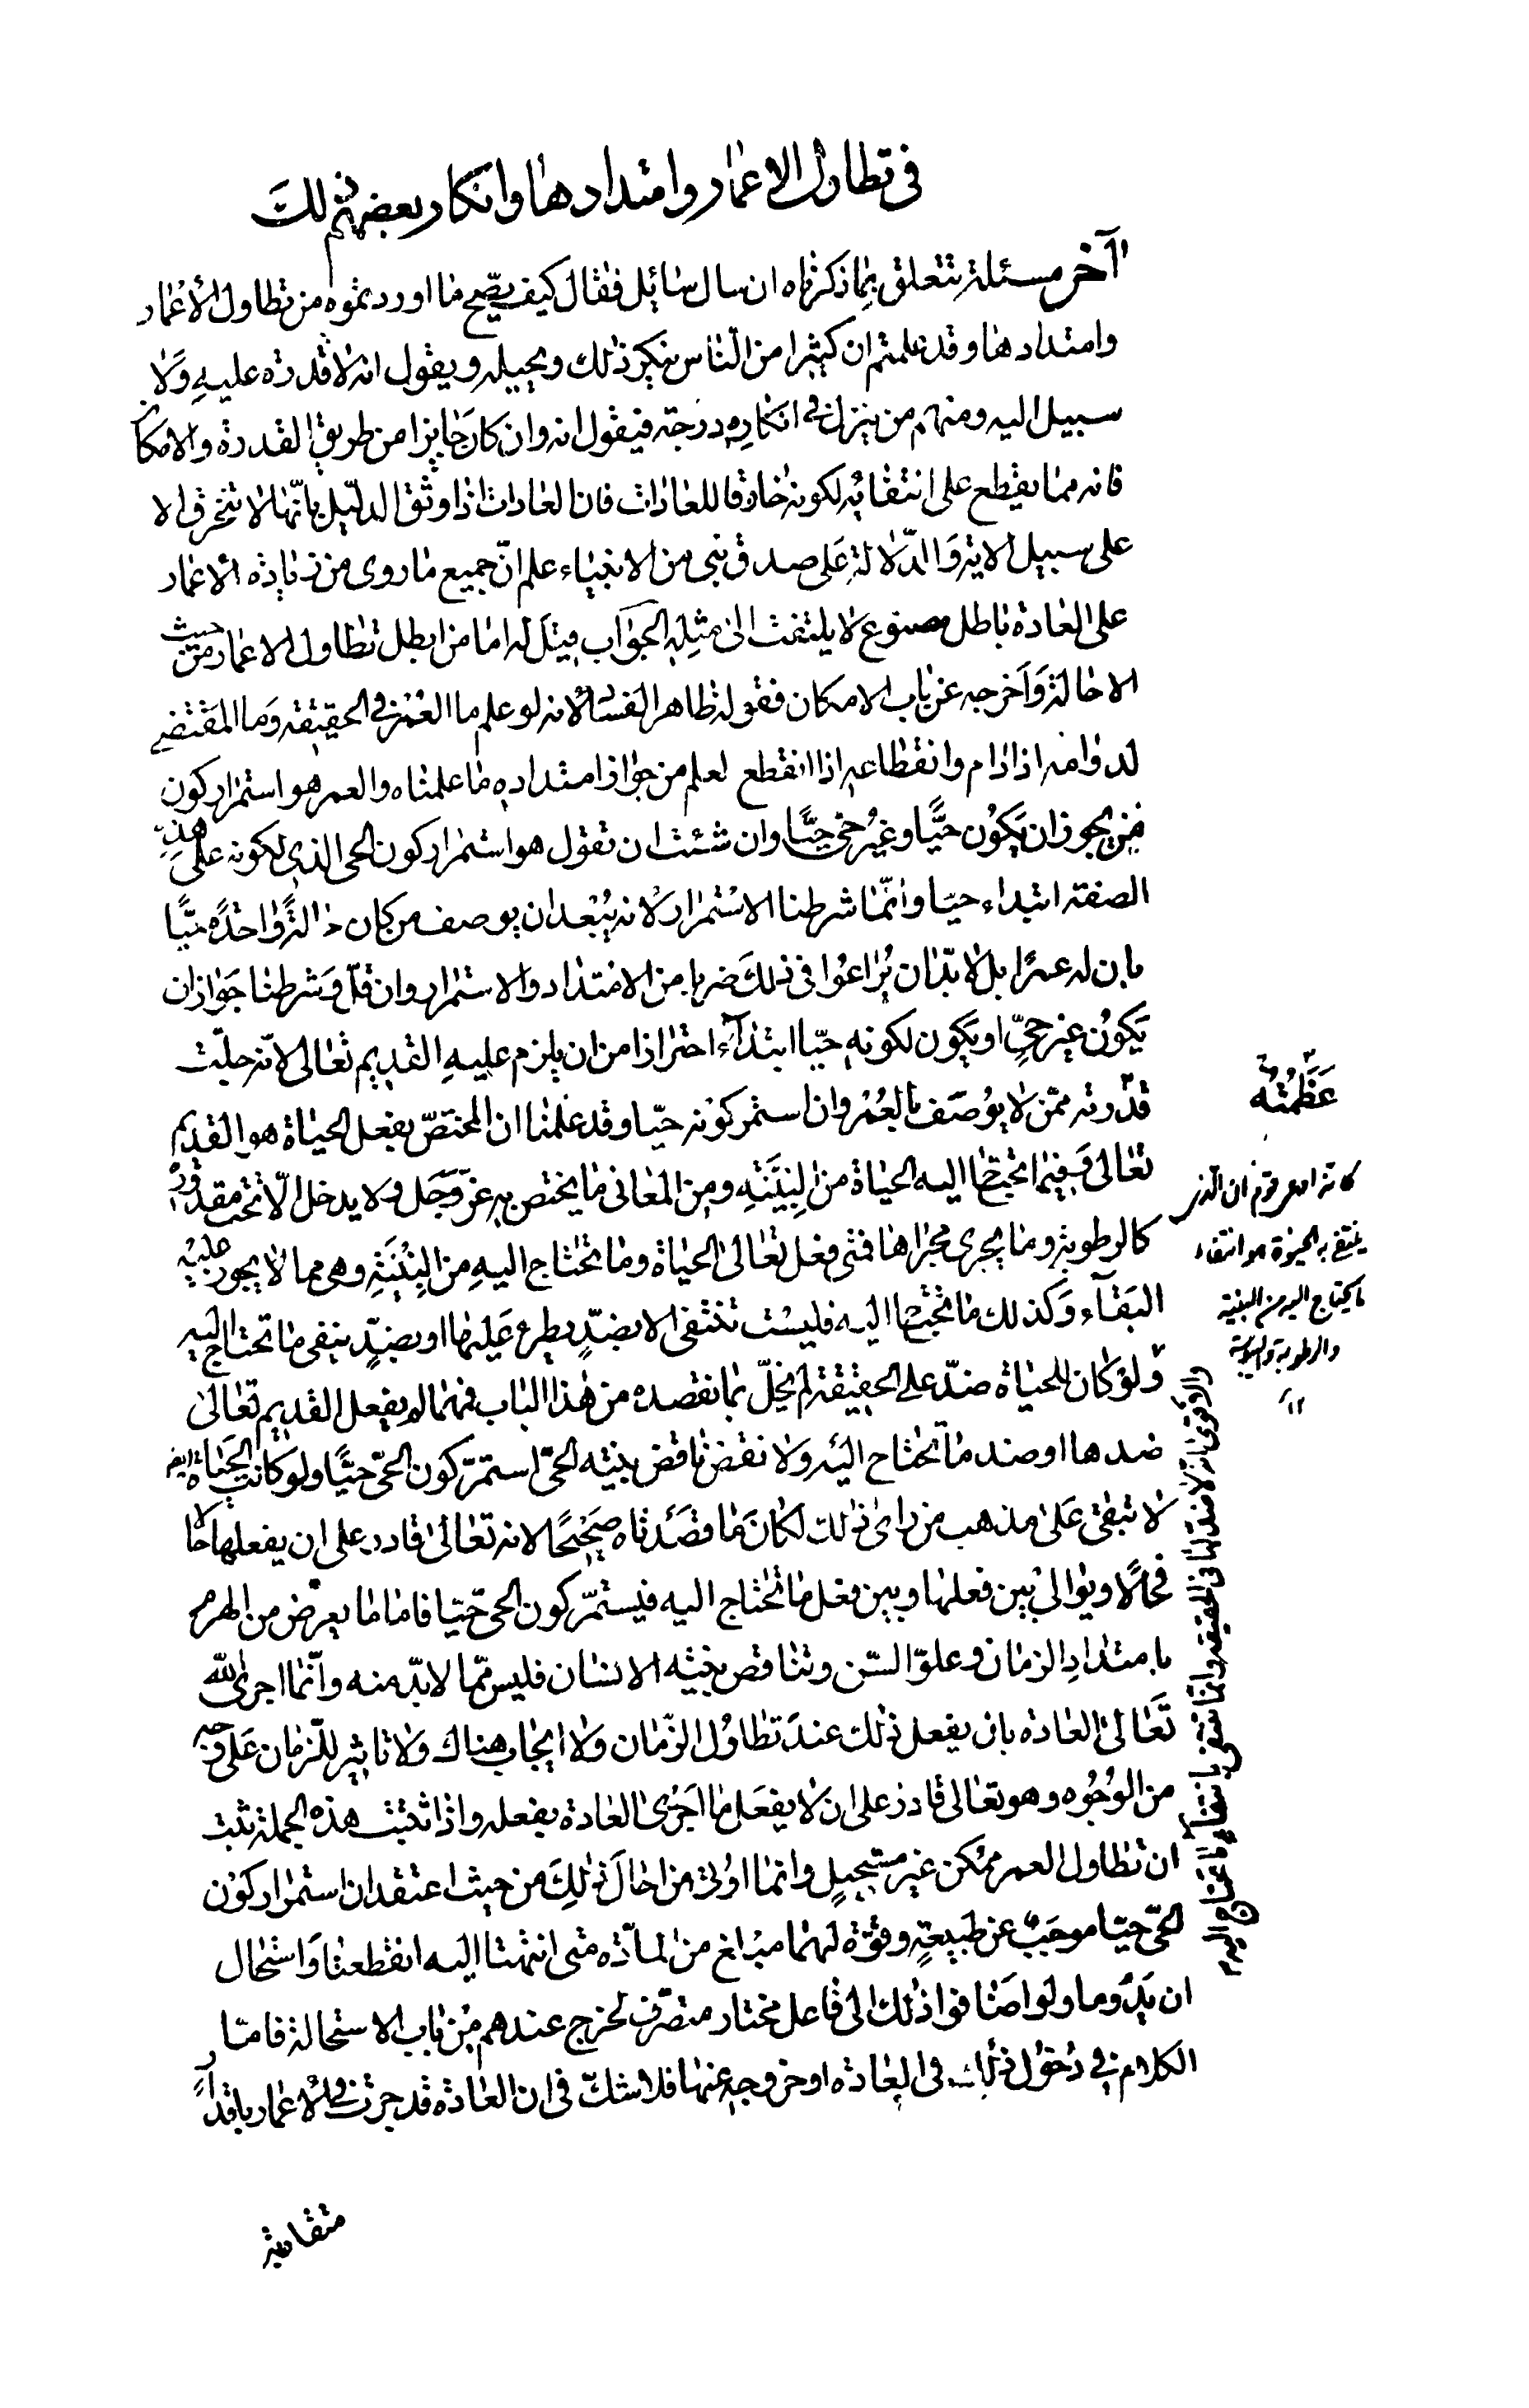 في تطاول الاعمار وامتدادها وانكار بعضهم ذلك
آخر مسئلة تتعلق بما ذكرناه ان سال سائل فقال كيف يصح ما اوردتموه من تطاول الأعمار
وامتدادها وقد علمتم ان كثيرا من الناس ينكر ذلك ويحيله ويقول انه لا قدرة عليه ولا
سبيل اليه ومنهم من ينزل في انكاره درجة فيقول انه وان كان جايزا من طريق القدرة والامكا
فانه مما يقطع على انتفائه لكونه خارقا للعادات فان العادات اذا وثق الدليل بانها لا تنخرق الا
على سبيل الاية والدلالة على صدق نبي من الانبياء علم ان جميع ما روى من زيادة الاعمار
على العادة باطل مصنوع لا يلتفت الى مثله الجواب قيل له اما من ابطل تطاول الاعمار من حيث
الاحالة واخرجه عن باب الامكان فقوله ظاهر الفساد لانه لو علم ما العمر في الحقيقة وما المقتضي
لدوامه اذا دام وانقطاعه اذا انقطع لعلم من جواز امتداده ما علمناه والعمر هو استمرار كون
من يجوز ان يكون حيًّا وغير حي حيًّا وان شئت ان تقول هو استمرار كون الحي الذي لكونه على هذه
الصفة ابتداء حيّا وانّما شرطنا الاستمرار لانه يبعد ان يوصف من كان حالةً واحدةً حيًّا
بان له عمرًا بل لا بدّ ان يراعوا في ذلك ضربا من الامتداد والاستمرار وان قلّ وشرطنا جواز ان
يكون غير حيٍّ او يكون لكونه حيّا ابتداءً احترازا من ان يلزم عليه القديم تعالى لانه جلّت
قدرته ممّن لا يوصف بالعمر وان استمر كونه حيّا وقد علمنا ان المختصّ بفعل الحياة هو القديم
تعالى وفيما تحتاج اليه الحياة من البنية ومن المعاني ما يختص به عزّ وجل ولا يدخل الّا تحت مقدوره
كالرطوبة وما يجري مجراها فمتى فعل تعالى الحياة وما تحتاج اليه من البنية وهى مما لا يجوز عليه
البقاء وكذلك ما تحتاج اليه فليست تنتفى الا بضدٍّ يطرء عليها او بضدٍّ ينفى ما تحتاج اليه
ولو كان للحياة ضدّ على الحقيقة لم يخلّ بما نقصده من هذا الباب فمهما لم يفعل القديم تعالى
ضدها او ضد ما تحتاج اليه ولا نقض ناقض بنية الحىّ استمرّ كون الحىّ حيًّا ولو كانت الحياة ايضا
لا تبقى على مذهب من راى ذلك لكان ما قصدناه صحيحًا لانه تعالى قادر على ان يفعلها حالا
فحالًا ويوالى بين فعلها وبين فعل ما تحتاج اليه فيستمرّ كون الحى حيّا فاما ما يعرض من الهرم
بامتداد الزمان وعلوّ السّن وتناقص بنية الانسان فليس مّما لا بدّ منه وانّما اجرى الله
تعالى العادة بان يفعل ذلك عند تطاول الزّمان ولا ايجاب هناك ولا تاثير للزّمان على وجه
من الوجوه وهو تعالى قادر على ان لا يفعل ما اجرى العادة بفعله واذا ثبتت هذه الجملة ثبت
ان تطاول العمر ممكن غير مستحيل وانما اوتى من احال ذلك من حيث اعتقد ان استمرار كون
الحىّ حيّا موجب عن طبيعة وقوّة لهما مبلغ من المادّة متى انتهتا اليه انقطعتا واستحال
ان يدوما ولو اضافوا ذلك الى فاعل مختار متصرّف لخرج عندهم من باب الاستحالة فامّا
الكلام في دخول ذلك في العادة او خروجه عنها فلا شكّ في ان العادة قد جرت في الاعمار باقدار
متقاربة
عظمته
ينتفي به الحيوة هو انتفاء
ما يحتاج اليه من البنية
والاقوى انه لا ضد لها في الحقيقة وانما تنتفي بانتفاء ما تحتاج اليه